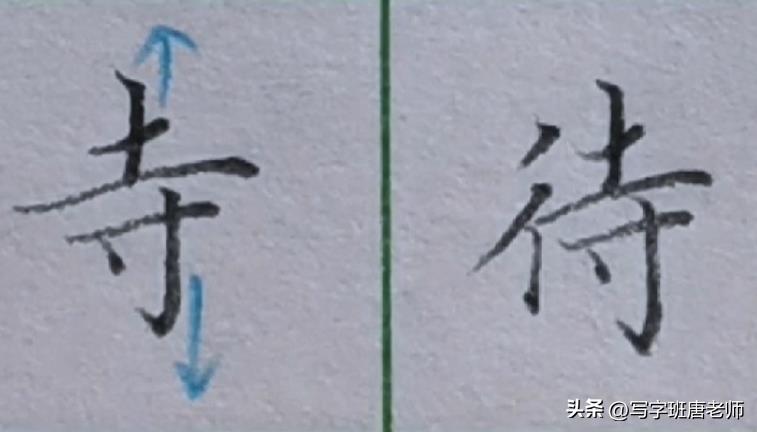 寺 待
头条 @写字班唐老师